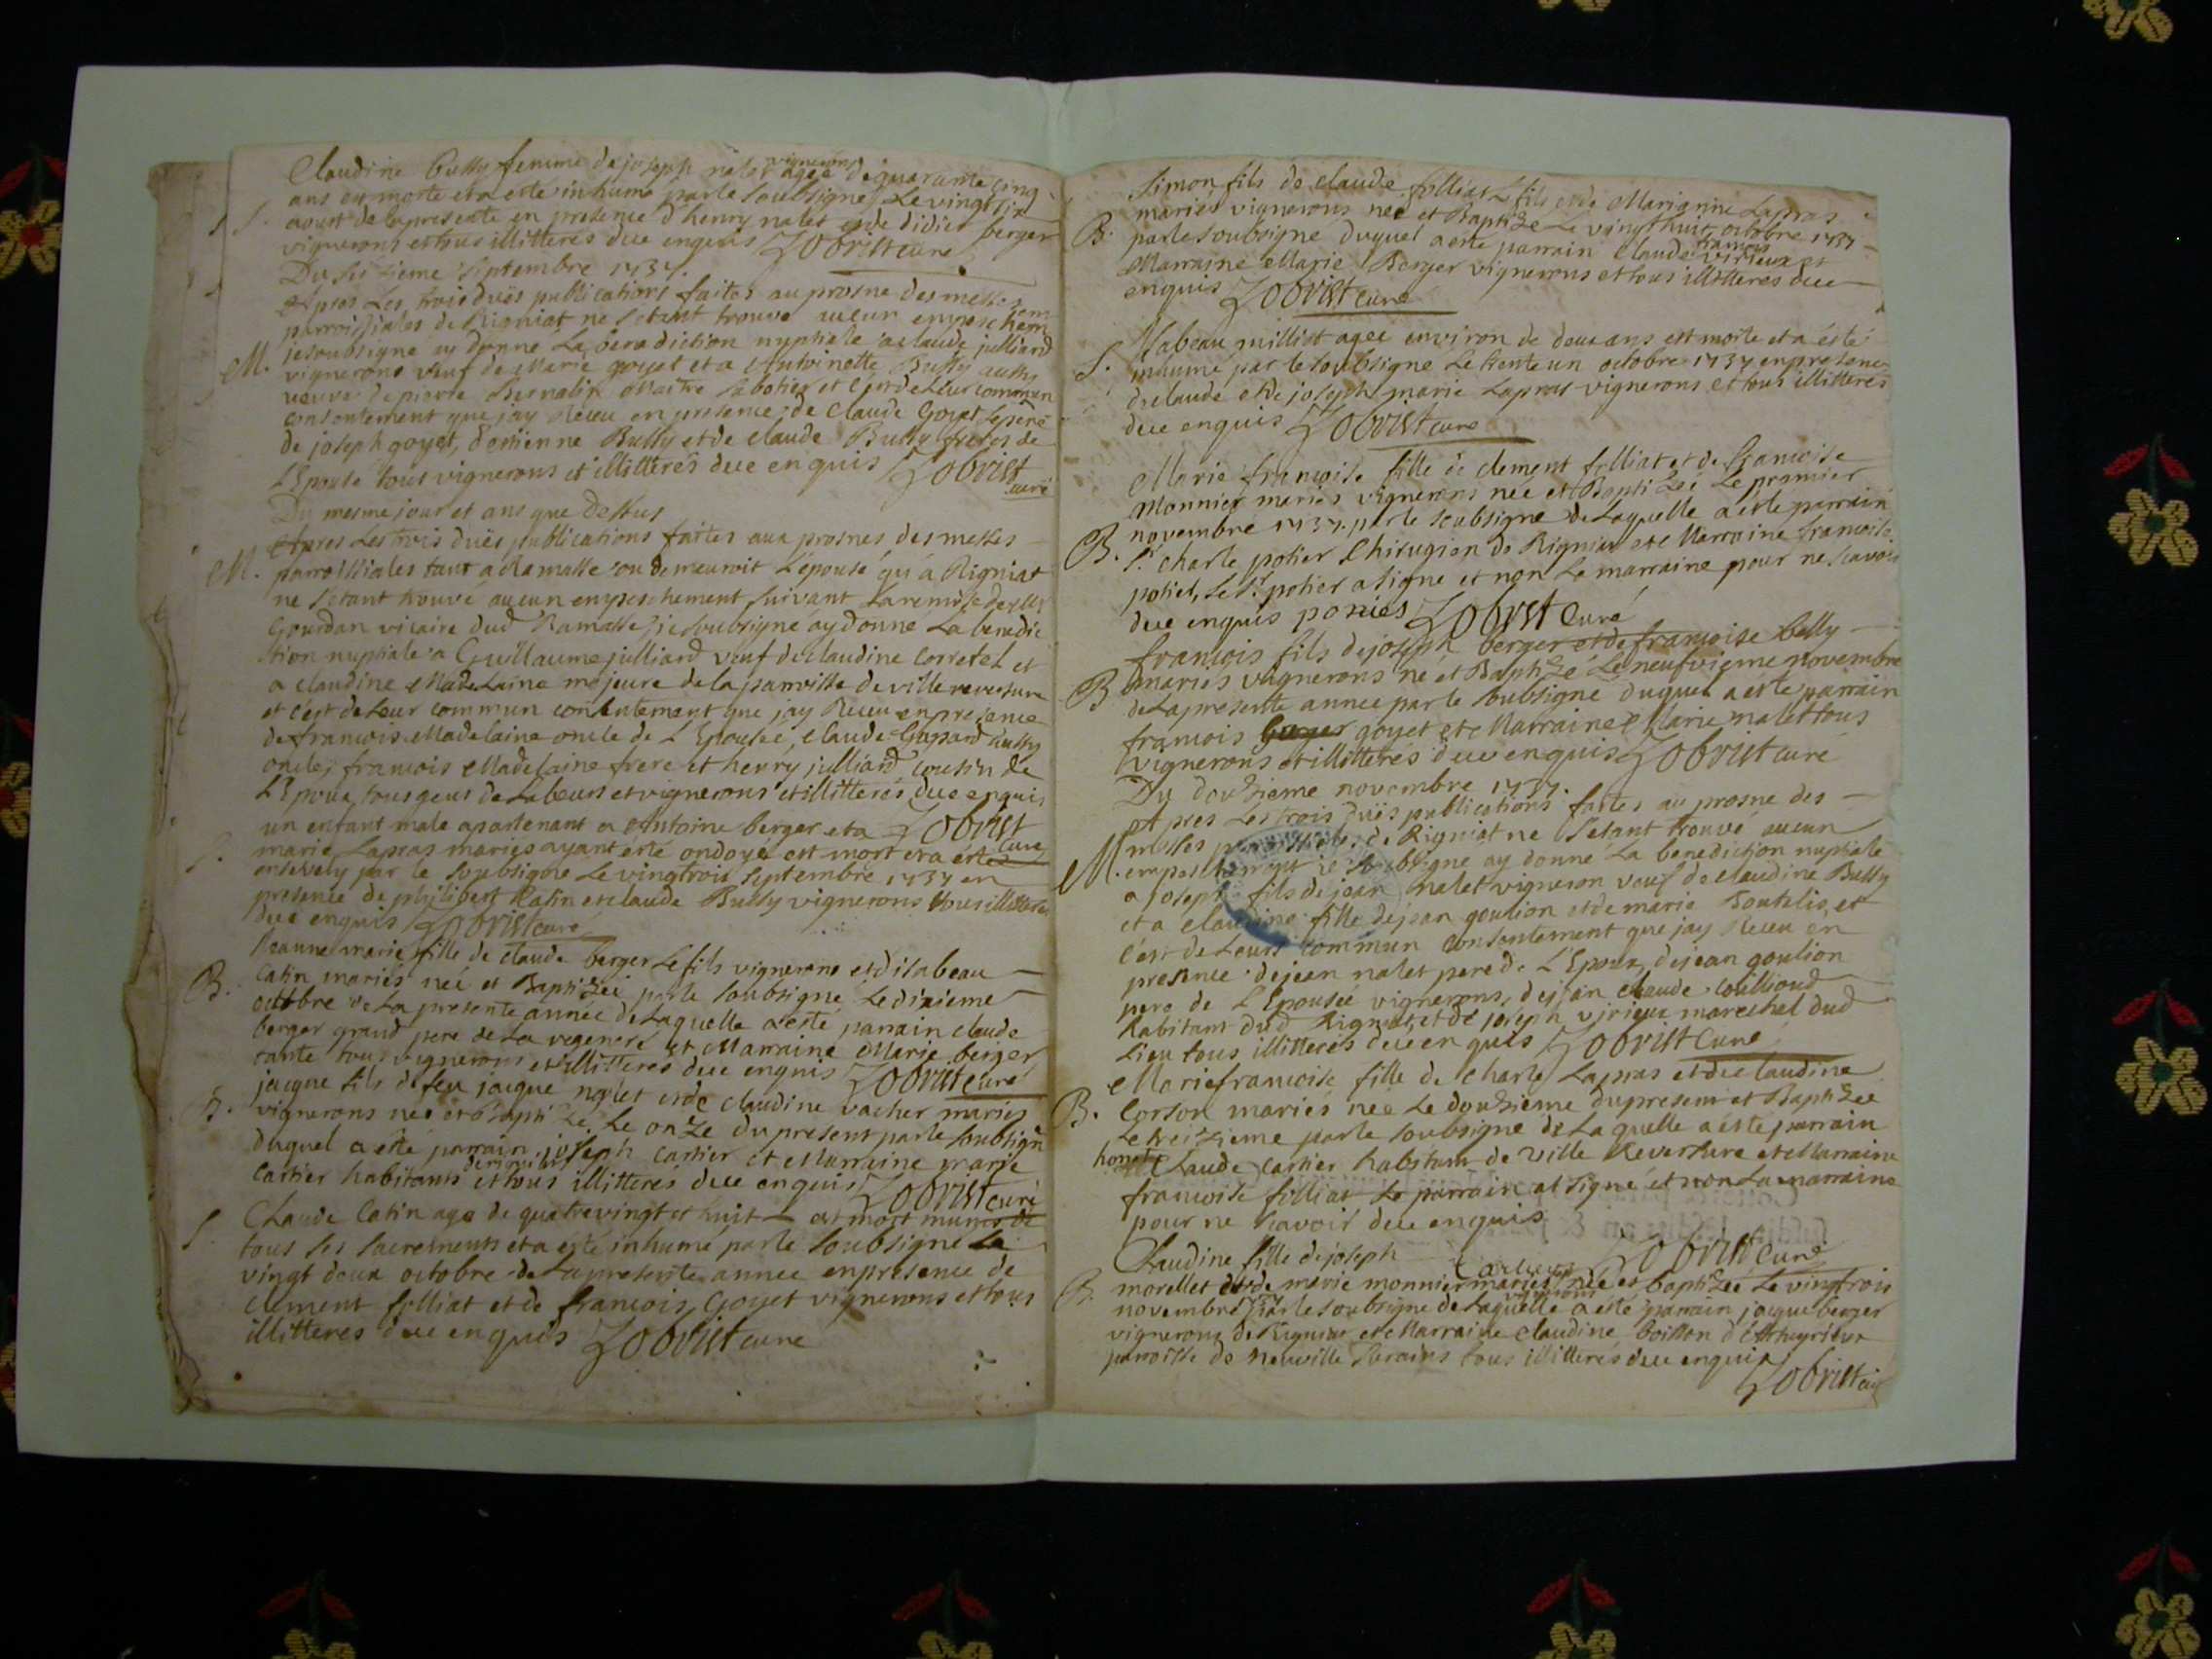 vignerons
Claudine bully femme de joseph nalet agée de quarante cinq
ans est morte et a esté inhumé par le soubsigné le vingt six
S. aoust de la presente en presence d'henry nalet et de didier berger
vignerons et tous illitterés due enquis Zobrist curé
Du seizieme septembre 1737.
Apres les trois duës publications faites au prosne des messes
parroissiales de Rigniat ne s'etant trouvé aucun empeschem
je soubsigné ay donné la benediction nuptiale a claude julliard
M. vignerons veuf de Marie goyet et a Antoinette Bully aussy
veuve de pierre maitre sabotier et c'est de leur commun
consentement que jay Receu en presence de claude Goyet
de joseph goyet, d'etienne Bully et de claude Bully freres de
L'Epouse tous vignerons et illitterés due enquis Zobrist
curé
Du mesme jour et ans que dessus
Apres les trois duës publications faites aux prosnes des messes
M. parroissiales tant a Ramasse ou demeuroit l'épouse qu'a Rigniat
ne s'etant trouvé aucun empeschement suivant la remise de
Gourdan vicaire dud Ramasse je soubsigné ay donné la benedic
tion nuptiale a Guillaume julliard veuf de claudine Corretel et
a claudine Madelaine majeure de la parroisse de ville reversure
et c'est de leur commun consentement que jay Receu en presence
de francois Madelaine oncle de L'Epousée, claude Gaspard Bully
oncle, francois Madelaine frere et henry julliard cousin de
L'Epoux tous gens de labeur et vignerons et illitterés due enquis
un enfant male apartenant a Antoine berger et a Zobrist
curé
S. marie Lapras mariés ayant esté ondoyé est mort et a esté
ensevely par le soubsigné le vingtrois septembre 1737 en
presence de philibert Catin et claude Bully vignerons tous illitterés
due enquis Zobrist curé
Jeanne marie fille de claude berger le fils vignerons et d'isabeau
B. Catin mariés née et Baptizée par le soubsigné le dixieme
octobre de la presente année de laquelle a esté parrain claude
berger grand pere de la regeneré et Marraine Marie berger
tante tous vignerons et illitterés due enquis Zobrist curé
jacque fils de feu jacque nalet et de claudine vacher mariés
B. vignerons né et Baptizé le onze du present par le soubsigné
duquel a esté parrain joseph cartier et Marraine marie
cartier habitants et tous illitterés due enquis Zobrist curé
S. Claude Catin agé de quatre vingt et huit est mort munis de
tous ses sacrements et a esté inhumé par le soubsigné le
vingt deux octobre de la presente année en presence de
clement folliat et de francois Goyet vignerons et tous
illitterés due enquis Zobrist curé
Simon fils de claude folliat le fils et de Marianne Lapras
mariés vignerons né et Baptizé le vingt huit octobre 1737
B. par le soubsigné duquel a esté parrain claude francois virieux et
Marraine Marie Berger vignerons et tous illitterés due
enquis Zobrist curé
isabeau milliet agée environ de deux ans est morte et a esté
S. inhumé par le soubsigné le trente un octobre 1737 en presence
de claude et de joseph marie Lapras vignerons et tous illitterés
due enquis Zobrist curé
Marie francoise fille de clement folliat et de francoise
Monnier mariés vignerons née et Baptizée le premier
novembre 1737. par le soubsigné de laquelle a esté parrain
B. Sr. charle potier Chirugien de Rigniat et Marraine francoise
potier, le Sr. potier a signé et non la marraine pour ne scavoir
due enquis poties Zobrist Curé
francois fils de joseph berger et de francoise bully
B mariés vignerons né et Baptizé le neufvieme novembre
de la presente année par le soubsigné duquel a esté parrain
francois berger goyet et Marraine Marie nalet tous
vignerons et illitterés due enquis Zobrist curé
Du douzieme novembre 1737.
Apres les trois duës publications faites au prosne des
messes parroissiales de Rigniat ne s'etant trouvé aucun
M. empeschement je soubsigné ay donné la benediction nuptiale
a joseph fils de jean nalet vigneron veuf de claudine Bully
et a claudine fille de jean goulion et de marie et
c'est de leurs commun consentement que jay Receu en
presence de jean nalet pere de L'Epoux, de jean goulion
pere de L'Epousée vignerons, de jean claude coilliaud
habitant dud Rigniat, et de joseph virieux mareschal dud
Lieu tous illitterés due enquis Zobrist Curé
Marie francoise fille de charle Lapras et de claudine
B. Corson mariés née le douzieme du present et Baptizée
le treizieme par le soubsigné de laquelle a esté parrain
honete Claude Cartier habitant de ville Reversure et Marraine
francoise folliat Le parrain at signé et non la marraine
pour ne scavoir due enquis
Cartier Zobrist Curé
Claudine fille de joseph
B. morellet et de marie monnier mariés vignerons née et baptizée le vingtrois
novembre 1737 par le soubsigné de laquelle a esté parrain jacque berger
vignerons de Rigniat et Marraine claudine boillon
parroisse de neuville surains tous illitterés due enquis
Zobrist curé